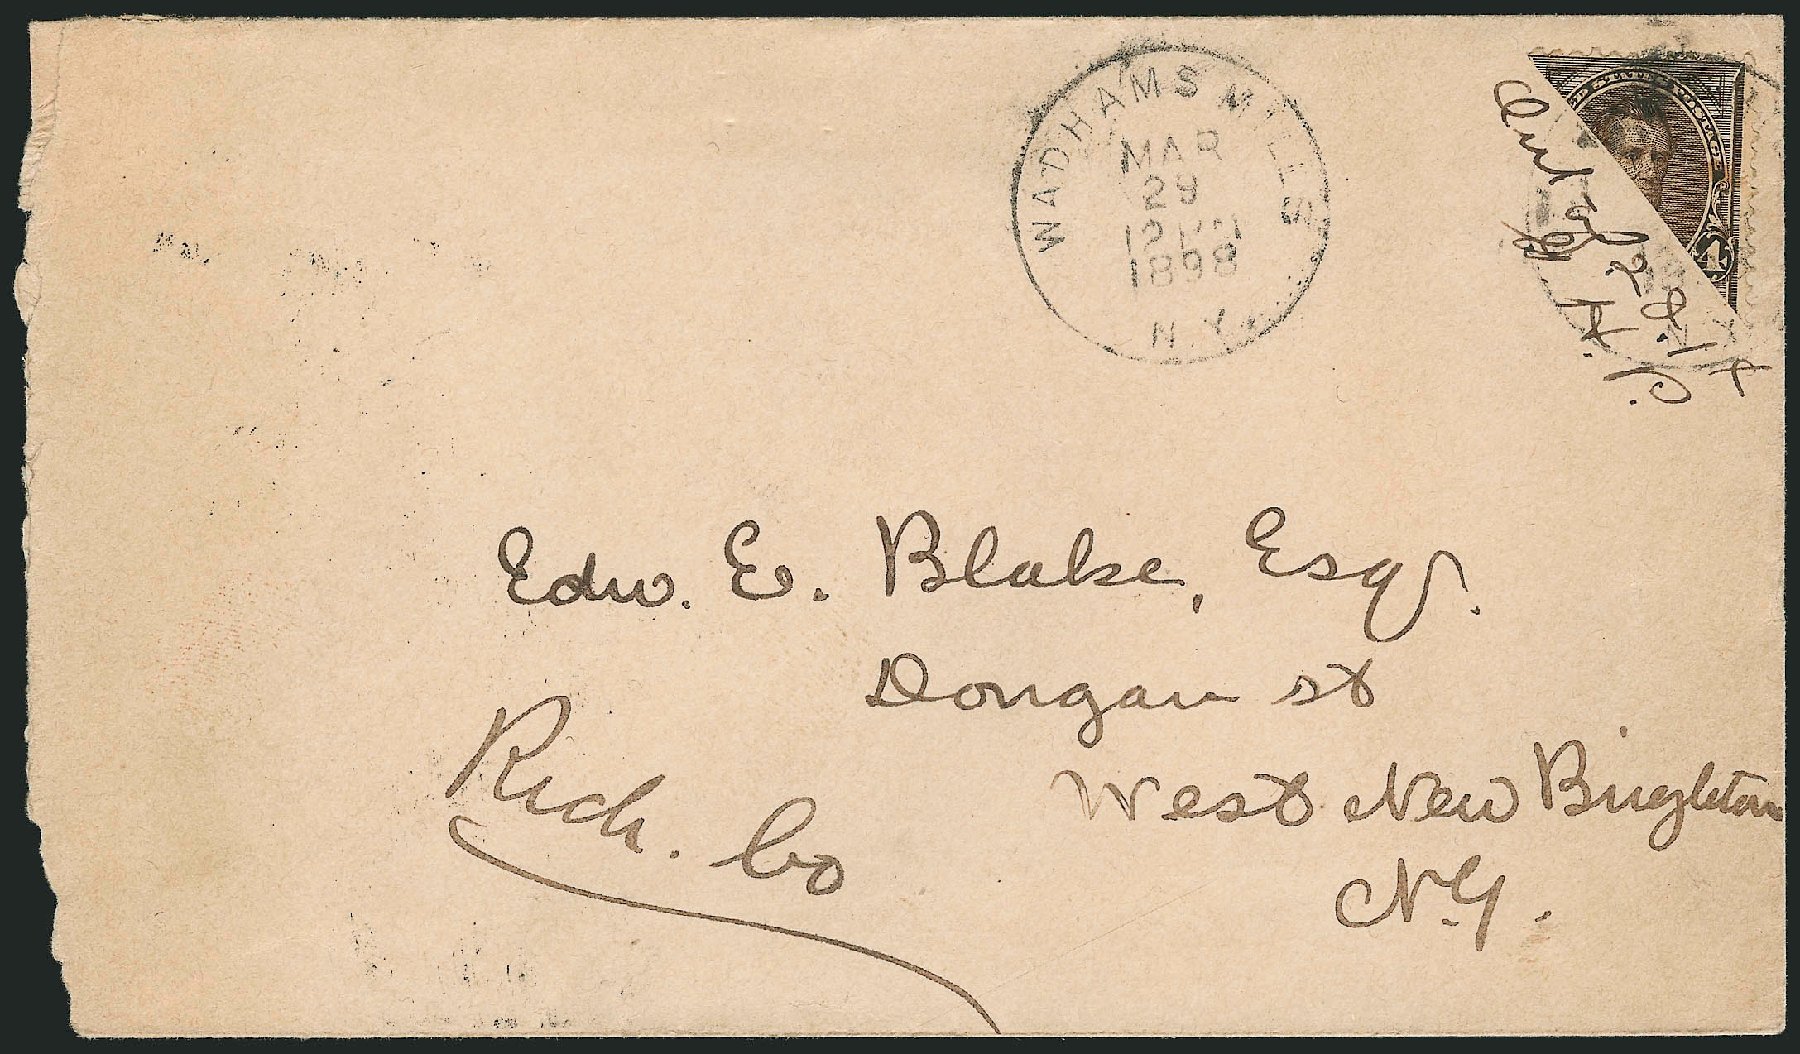 WADHAMS MILLS
MAR
29
12 M
1898
N.Y.
4
Out of 2c. 1
P.
Edw. E. Blake, Esq.
Dongan st
West New Brighton
N.Y.
Rich. Co